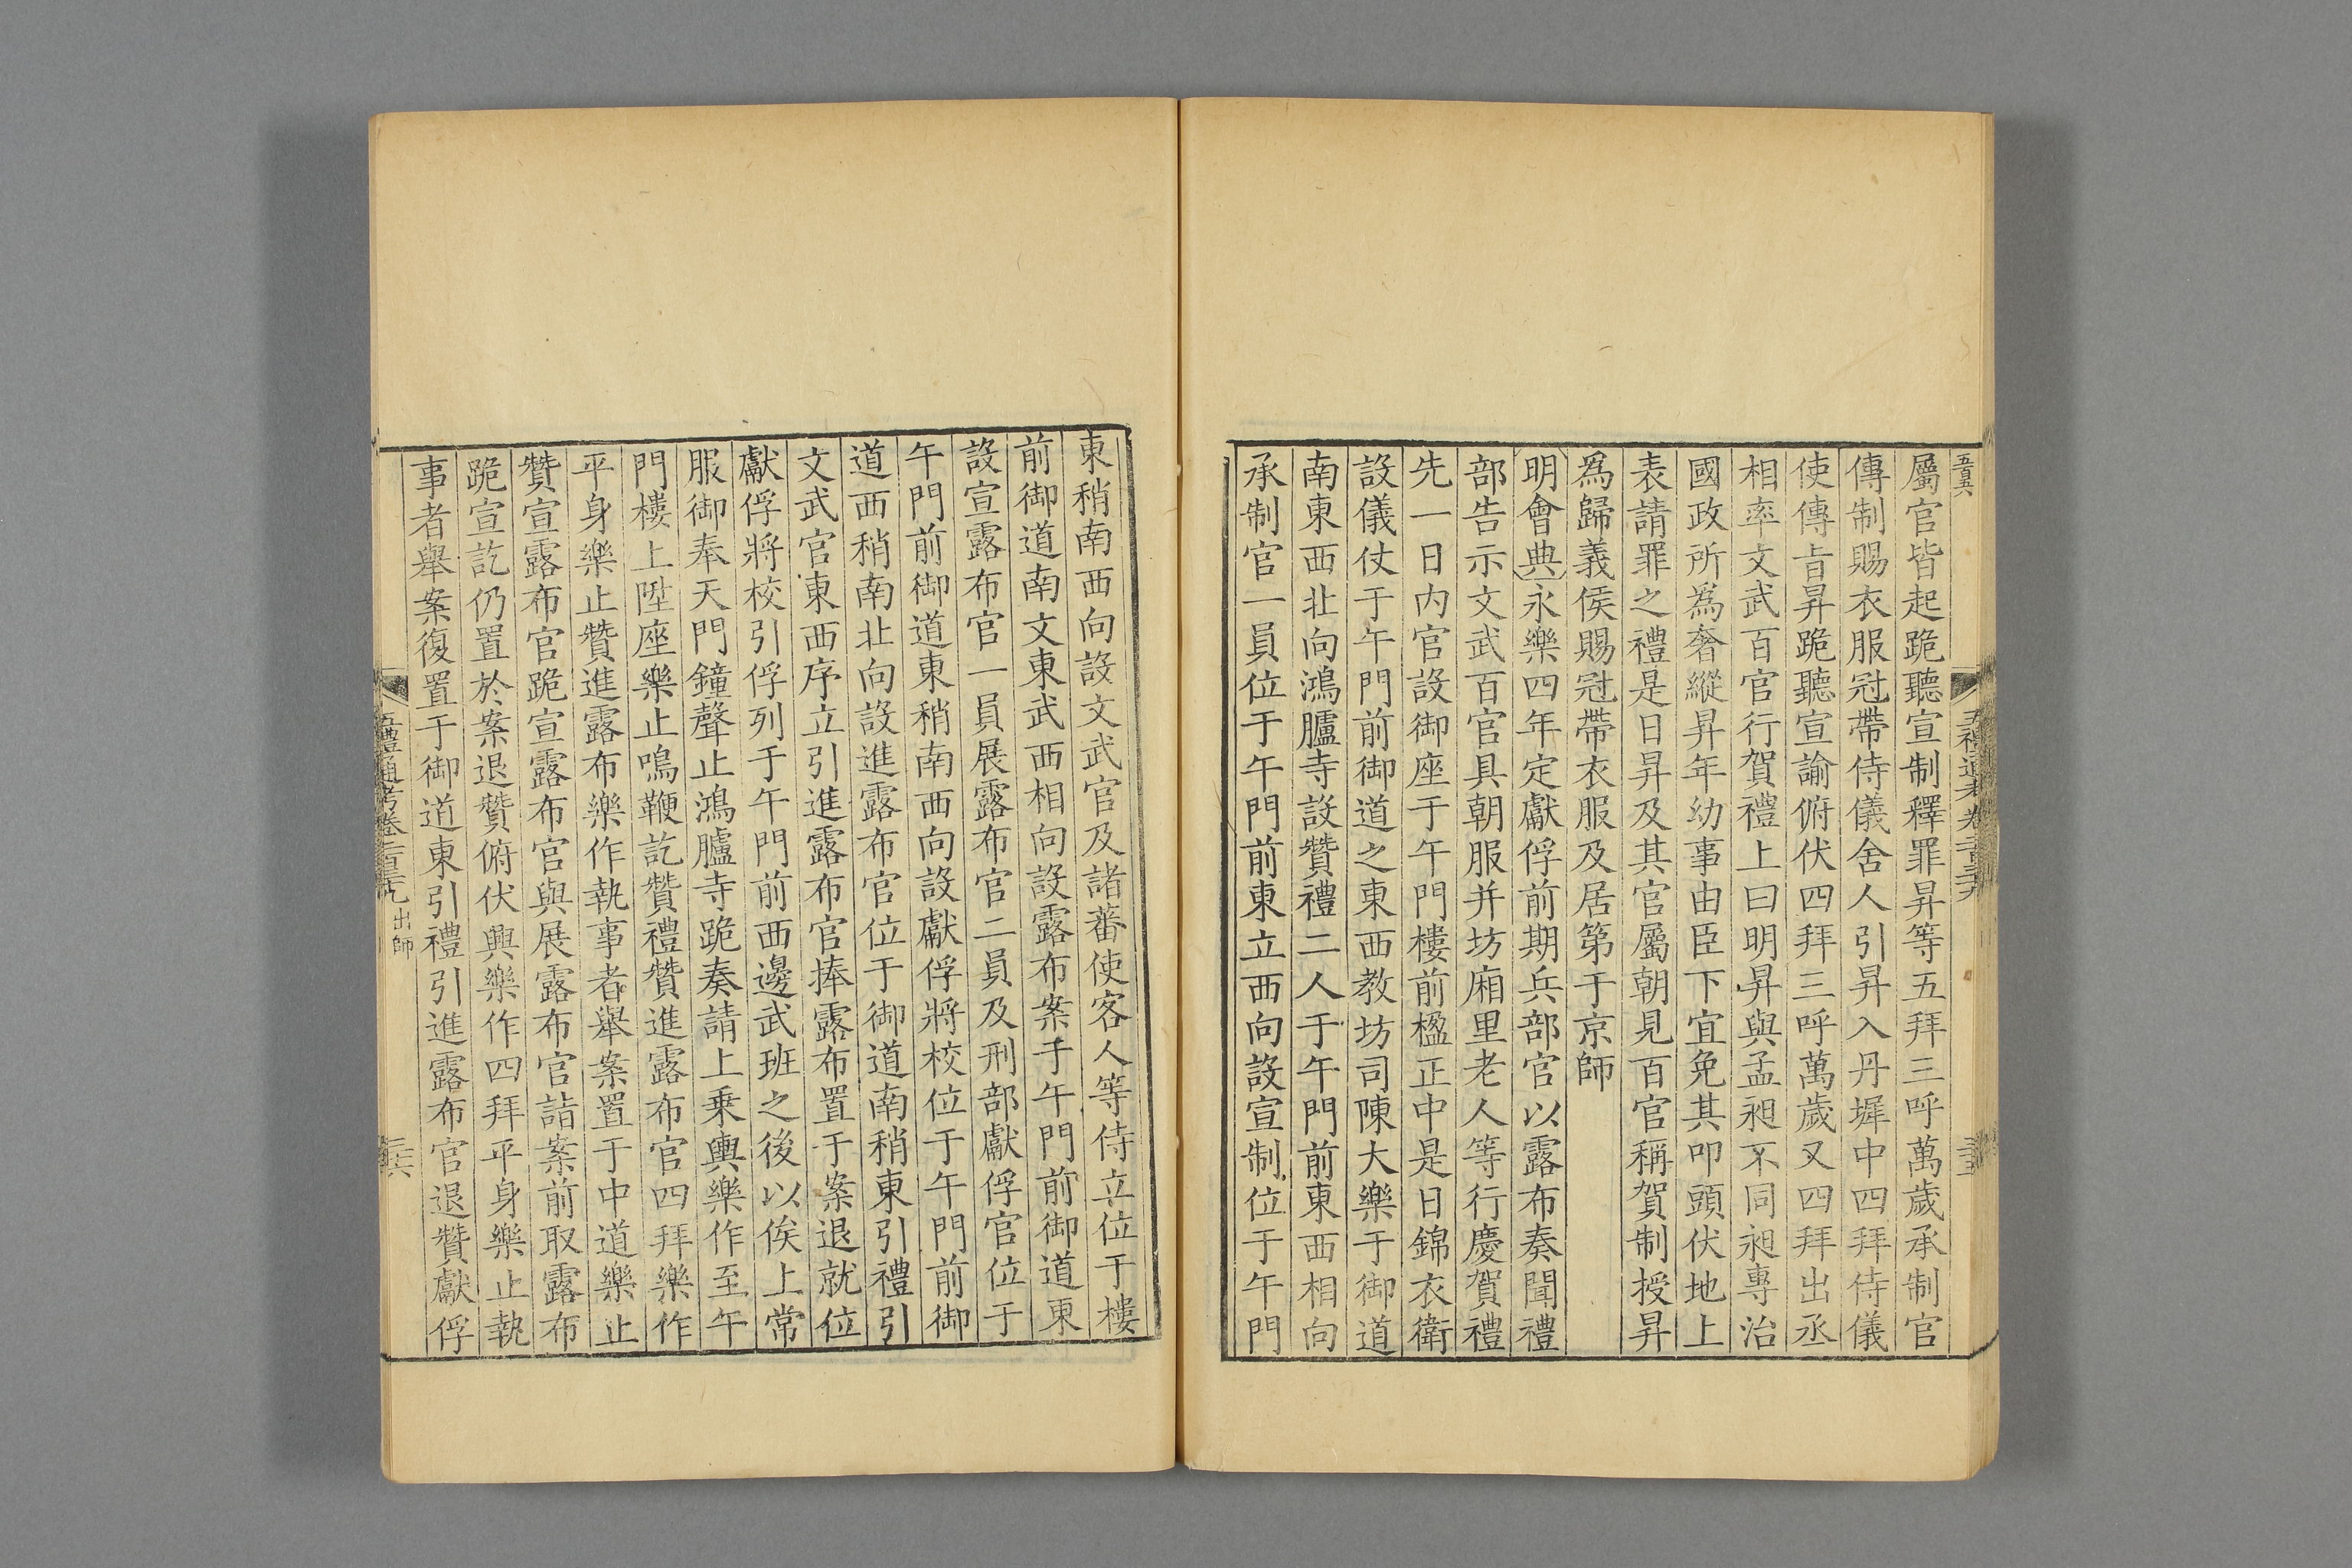 屬官皆起跪聽宣制釋罪昇等五拜三呼萬歲承制官
傳制賜衣服冠帶侍儀舍人引昇入丹墀中四拜侍儀
使傳旨昇跪聽宣諭俯伏四拜三呼萬歲又四拜出丞
相率文武百官行賀禮上曰明昇與孟昶不同昶專治
國政所爲奢縱昇年幼事由臣下宜免其叩頭伏地上
表請罪之禮是日昇及其官屬朝見百官稱賀制授昇
爲歸義侯賜冠帶衣服及居第于京師
明會典永樂四年定獻俘前期兵部官以露布奏聞禮
部告示文武百官具朝服并坊廂里老人等行慶賀禮
先一日内官設御座于午門樓前楹正中是日錦衣衛
設儀仗于午門前御道之東西教坊司陳大樂于御道
南東西北向鴻臚寺設贊禮二人于午門前東西相向
承制官一員位于午門前東立西向設宣制位于午門
東稍南西向設文武官及諸蕃使客人等侍立位于樓
前御道南文東武西相向設露布案于午門前御道東
設宣露布官一員展露布官二員及刑部獻俘官位于
午門前御道東稍南西向設獻俘將校位于午門前御
道西稍南北向設進露布官位于御道南稍東引禮引
文武官東西序立引進露布官捧露布置于案退就位
獻俘將校引俘列于午門前西邊武班之後以俟上常
服御奉天門鐘聲止鴻臚寺跪奏請上乗輿樂作至午
門樓上陞座樂止鳴鞭訖贊禮贊進露布官四拜樂作
平身樂止贊進露布樂作執事者舉案置于中道樂止
贊宣露布官跪宣露布官與展露布官詣案前取露布
跪宣訖仍置於案退贊俯伏興樂作四拜平身樂止執
事者舉案復置于御道東引禮引進露布官退贊獻俘
五禮通考卷二百三十九 出師